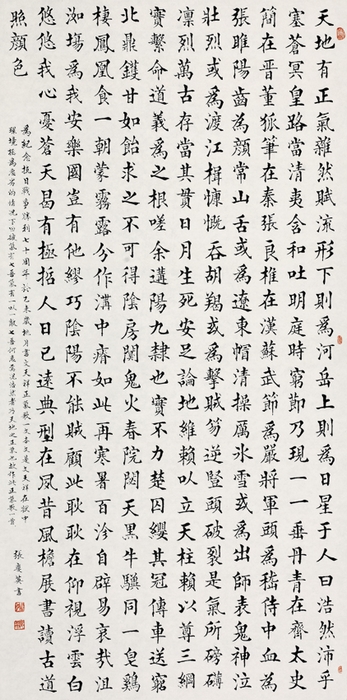 天地有正氣雜然賦流形下則為河岳上則為日星于人曰浩然沛乎
塞蒼冥皇路當清夷含和吐明庭時窮節乃現一一垂丹青在齊太史
簡在晉董狐筆在秦張良椎在漢蘇武節為嚴將軍頭為嵇侍中血為
張睢陽齒為顏常山舌或為遼東帽清操厲冰雪或為出師表鬼神泣
壯烈或為渡江楫慷慨吞胡羯或為擊賊笏逆豎頭破裂是氣所磅礴
凜烈萬古存當其貫日月生死安足論地維賴以立天柱賴以尊三綱
實繫命道義為之根嗟余遘陽九隸也實不力楚囚纓其冠傳車送窮
北鼎鑊甘如飴求之不可得陰房闃鬼火春院閟天黑牛驥同一皂雞
棲鳳凰食一朝蒙霧露分作溝中瘠如此再寒暑百沴自辟易哀哉沮
洳場為我安樂國豈有他繆巧陰陽不能賊顧此耿耿在仰視浮雲白
悠悠我心憂蒼天曷有極哲人日已遠典型在夙昔風檐展書讀古道
照顏色
為紀念抗日戰爭勝利七十周年於乙未歲秋月書文天祥正氣歌一首文天祥在獄中
張慶英書